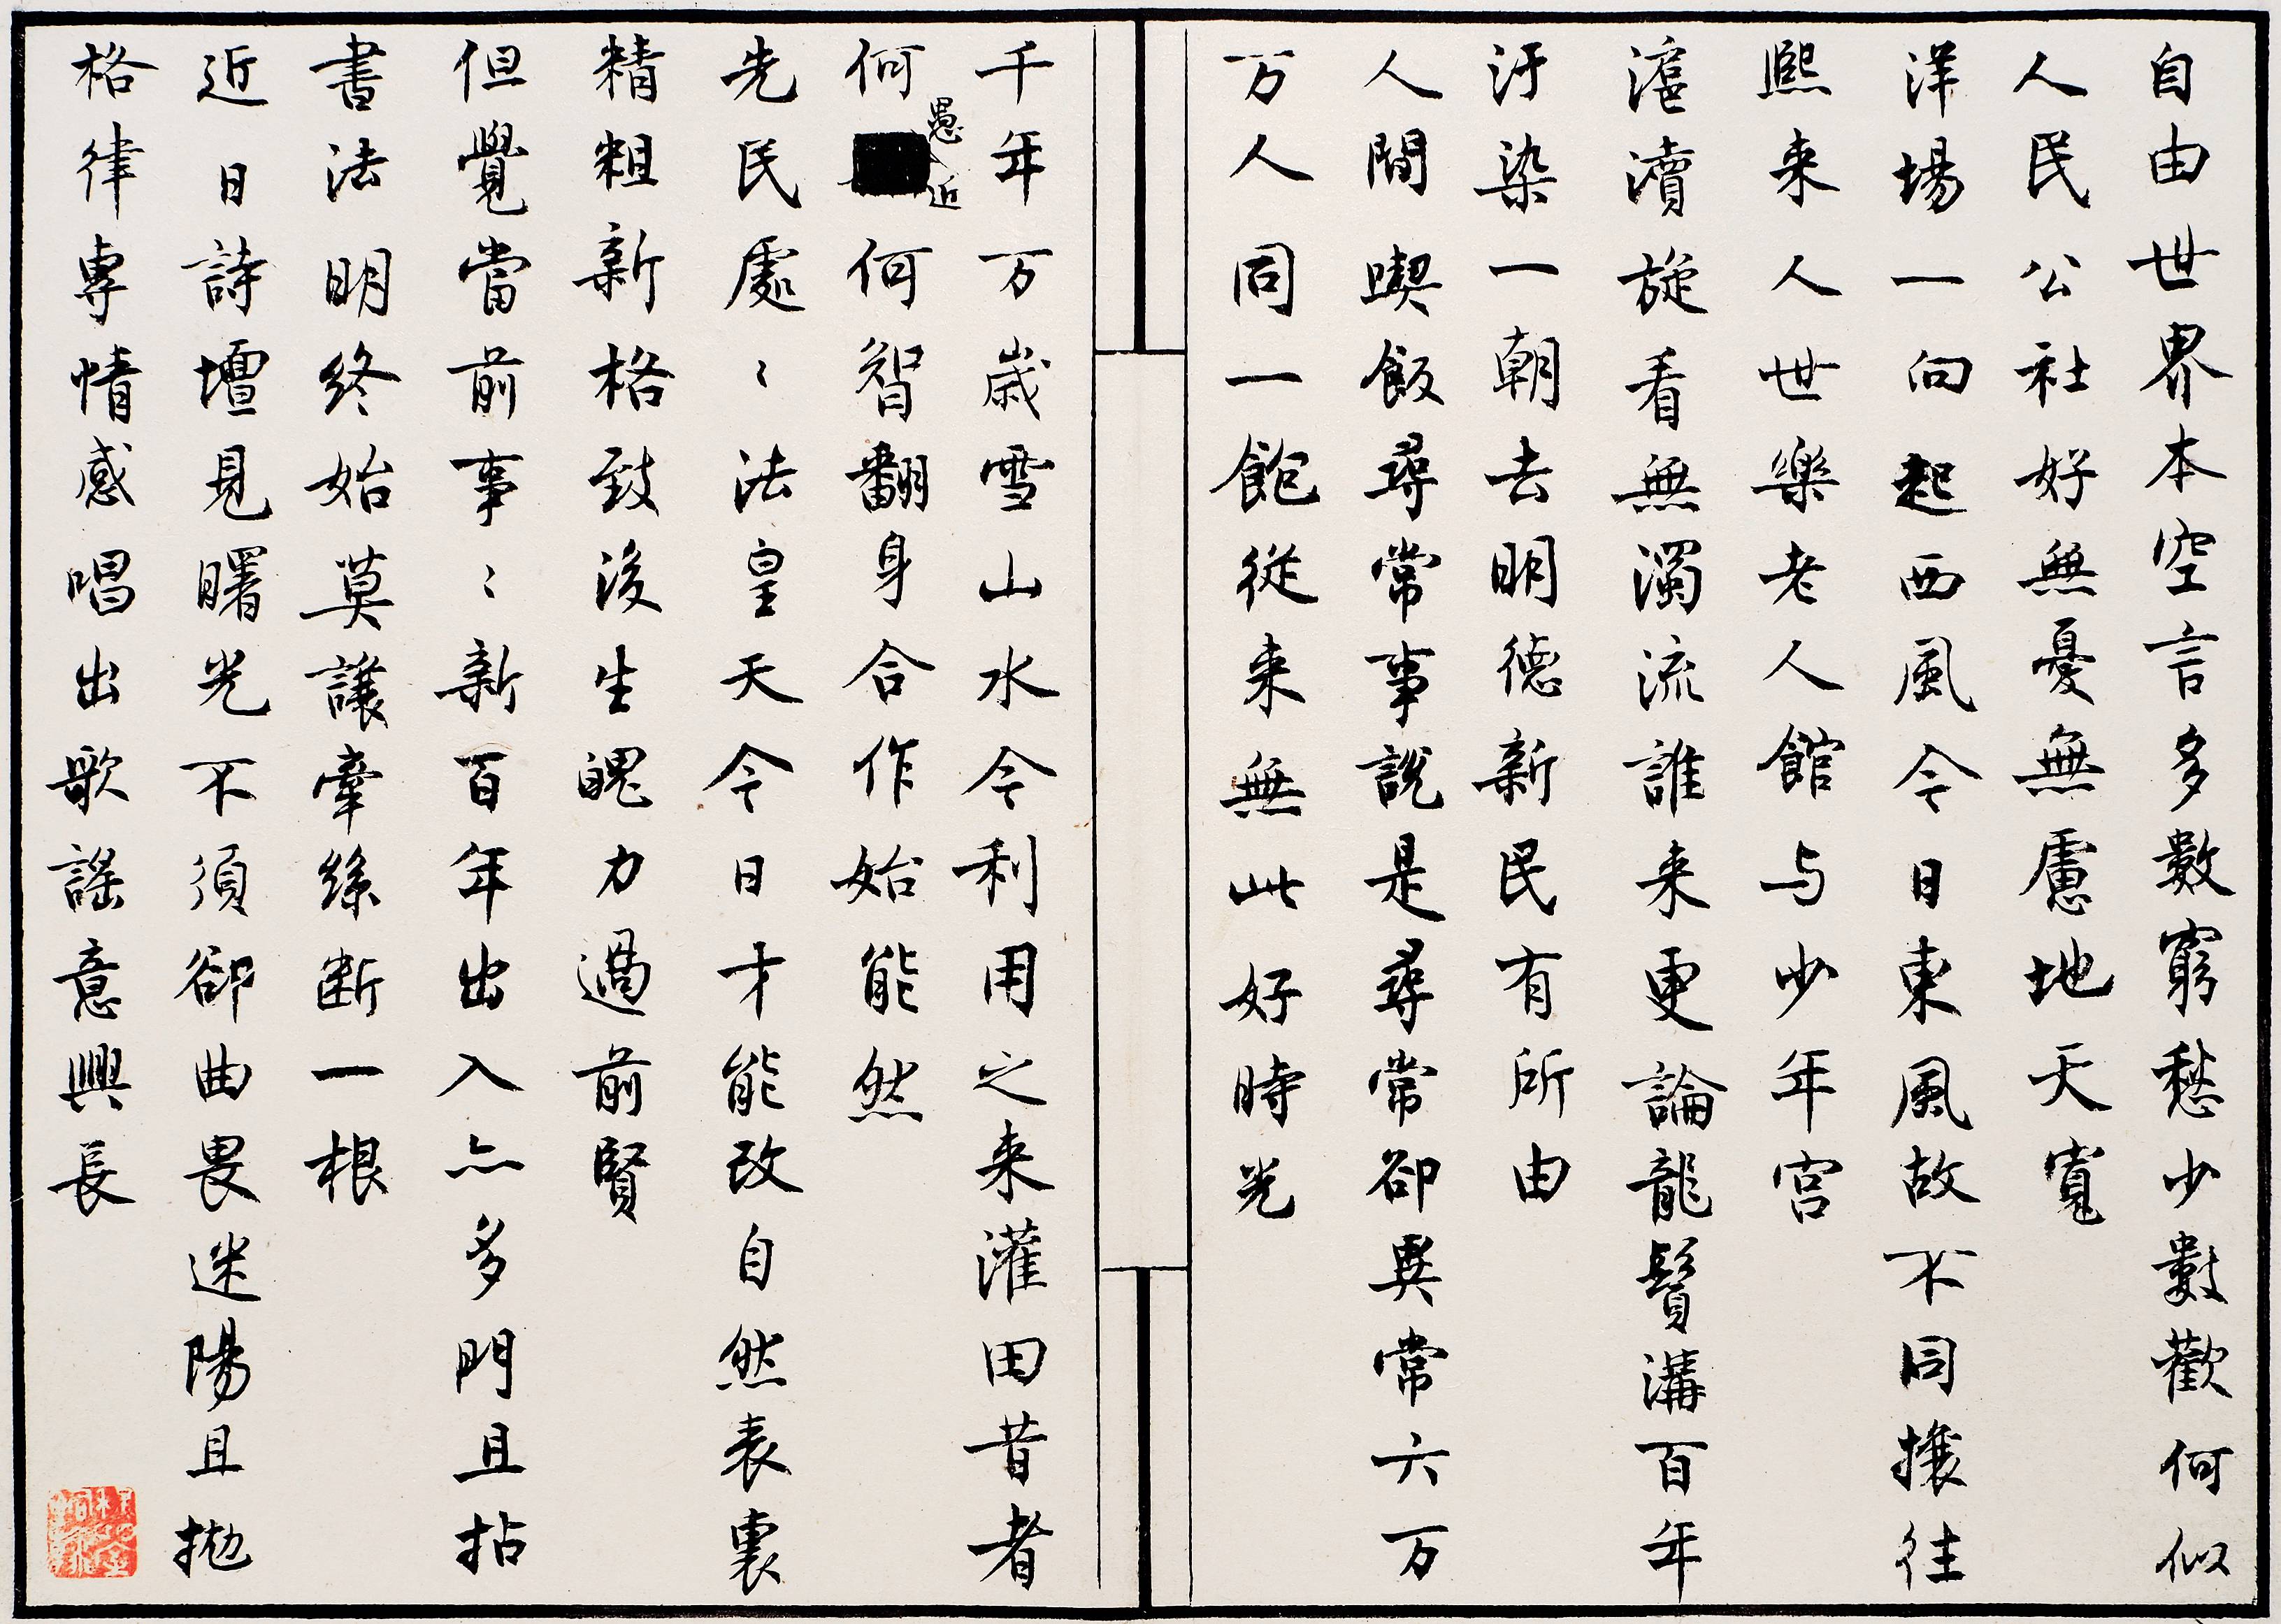 自由世界本空言多數窮愁少數歡何似
人民公社好無憂無慮地天寬
洋場一向起西風今日東風故不同攘往
熙来人世樂老人館与少年宮
滬瀆旋看無濁流誰来更論龍鬚溝百年
汙染一朝去明德新民有所由
人間喫飯尋常事說是尋常卻異常六万
万人同一飽從来無此好時光
千年万歲雪山水今利用之来灌田昔者
何愚近何智翻身合作始能然
先民處〻法皇天今日才能改自然表裏
精粗新格致後生魄力過前賢
但覺當前事〻新百年出入亦多門且拈
書法明終始莫讓牽絲斷一根
近日詩壇見曙光不須卻曲畏迷陽且拋
格律專情感唱出歌謠意興長